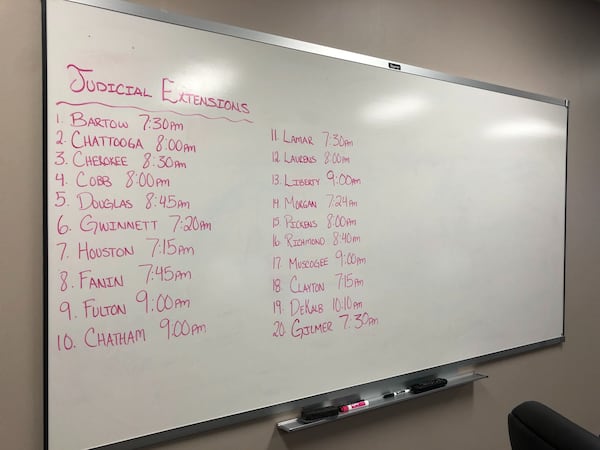 JUDICIAL EXTENSIONS
1. BARTOW 7:30pm
2. CHATTOOGA 8:00pm
3. CHEROKEE 8:30pm
4. COBB 8:00pm
5. DOUGLAS 8:45pm
6. GWINNETT 7:20pm
7. HOUSTON 7:15pm
8. FANIN 7:45pm
9. FULTON 9:00pm
10. CHATHAM 9:00pm
11. LAMAR 7:30pm
12. LAURENS 8:00pm
13. LIBERTY 9:00am
14 MORGAN 7:24pm
15. PICKENS 8:00pm
16. RICHMOND 8:40pm
17. MUSCOGEE 9:00pm
18. CLAYTON 7:15pm
19. DEKALB 10:10pm
20. GILMER 7:30pm